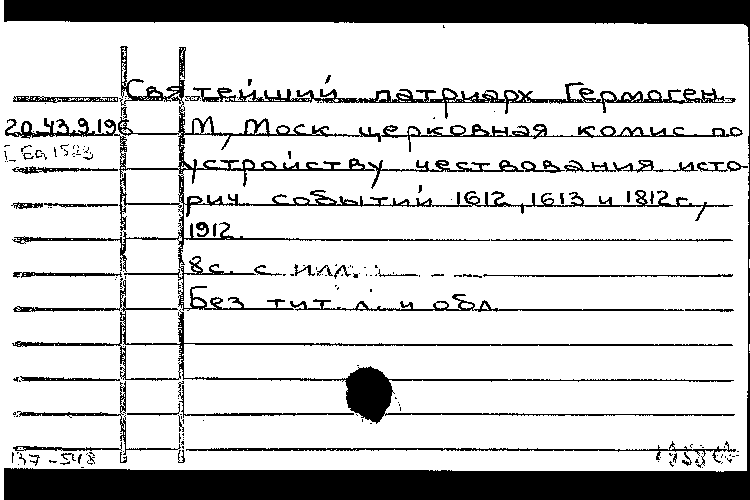 Святейший патриарх Гермоген.
20.43.9.196
М, Моск церковная комис по
I Ба 1523
устройству чествования исто-
рич. событий 1612, 1613 и 1812г.,
1912.
8с. с илл.
Без тит. л. и обл.
137-548